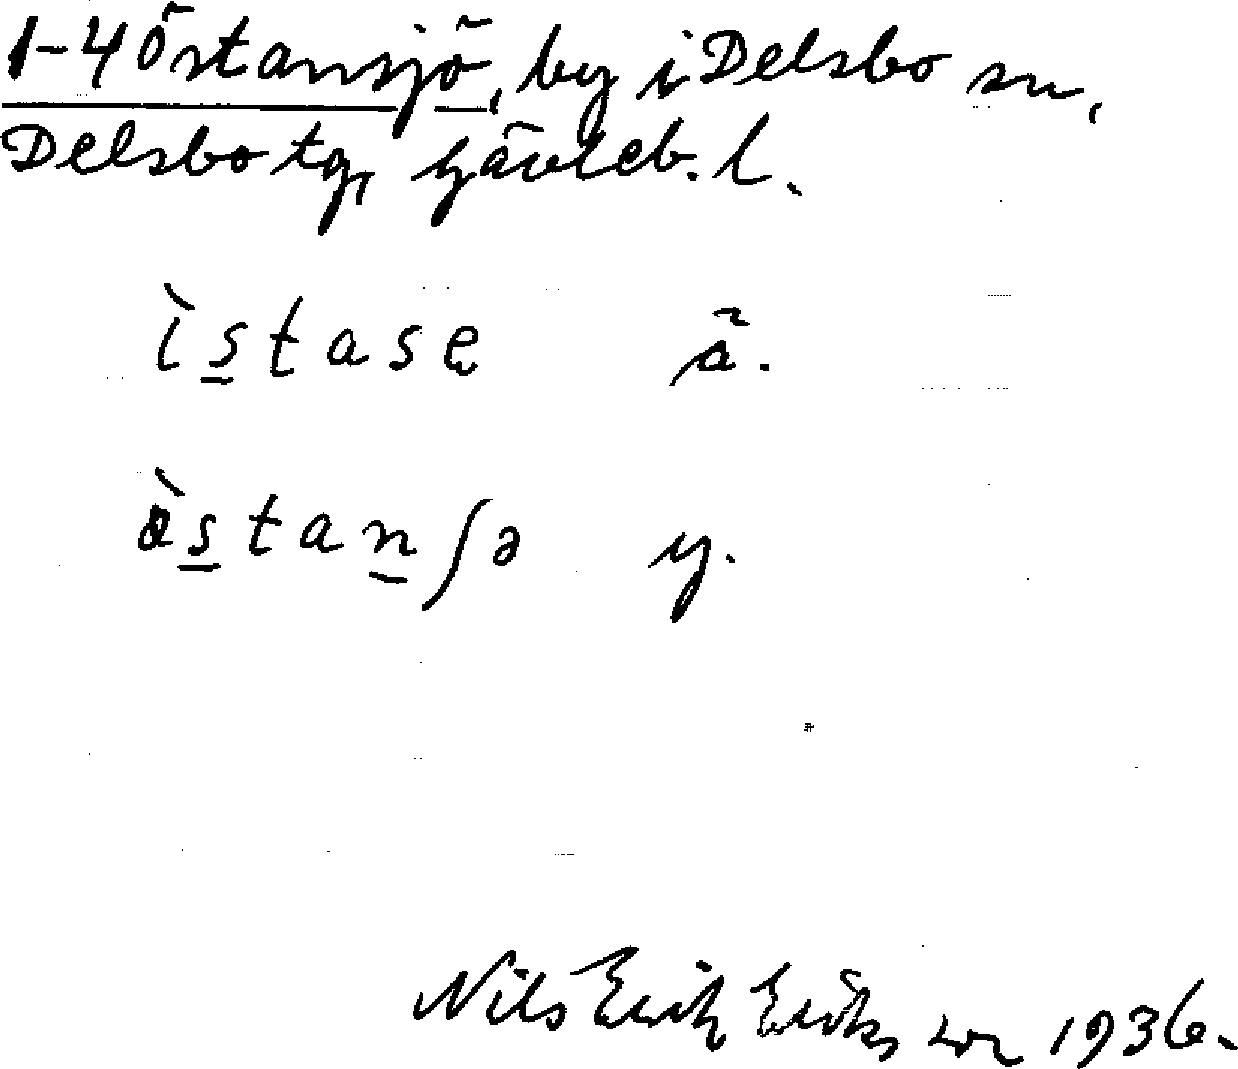 1-4 Östansjö, by i Delsbo sn,
Delsbo tg, Gävleb. l.
ìstase ä.
òstanʃə y.
Nils Erik Eriksson 1936.